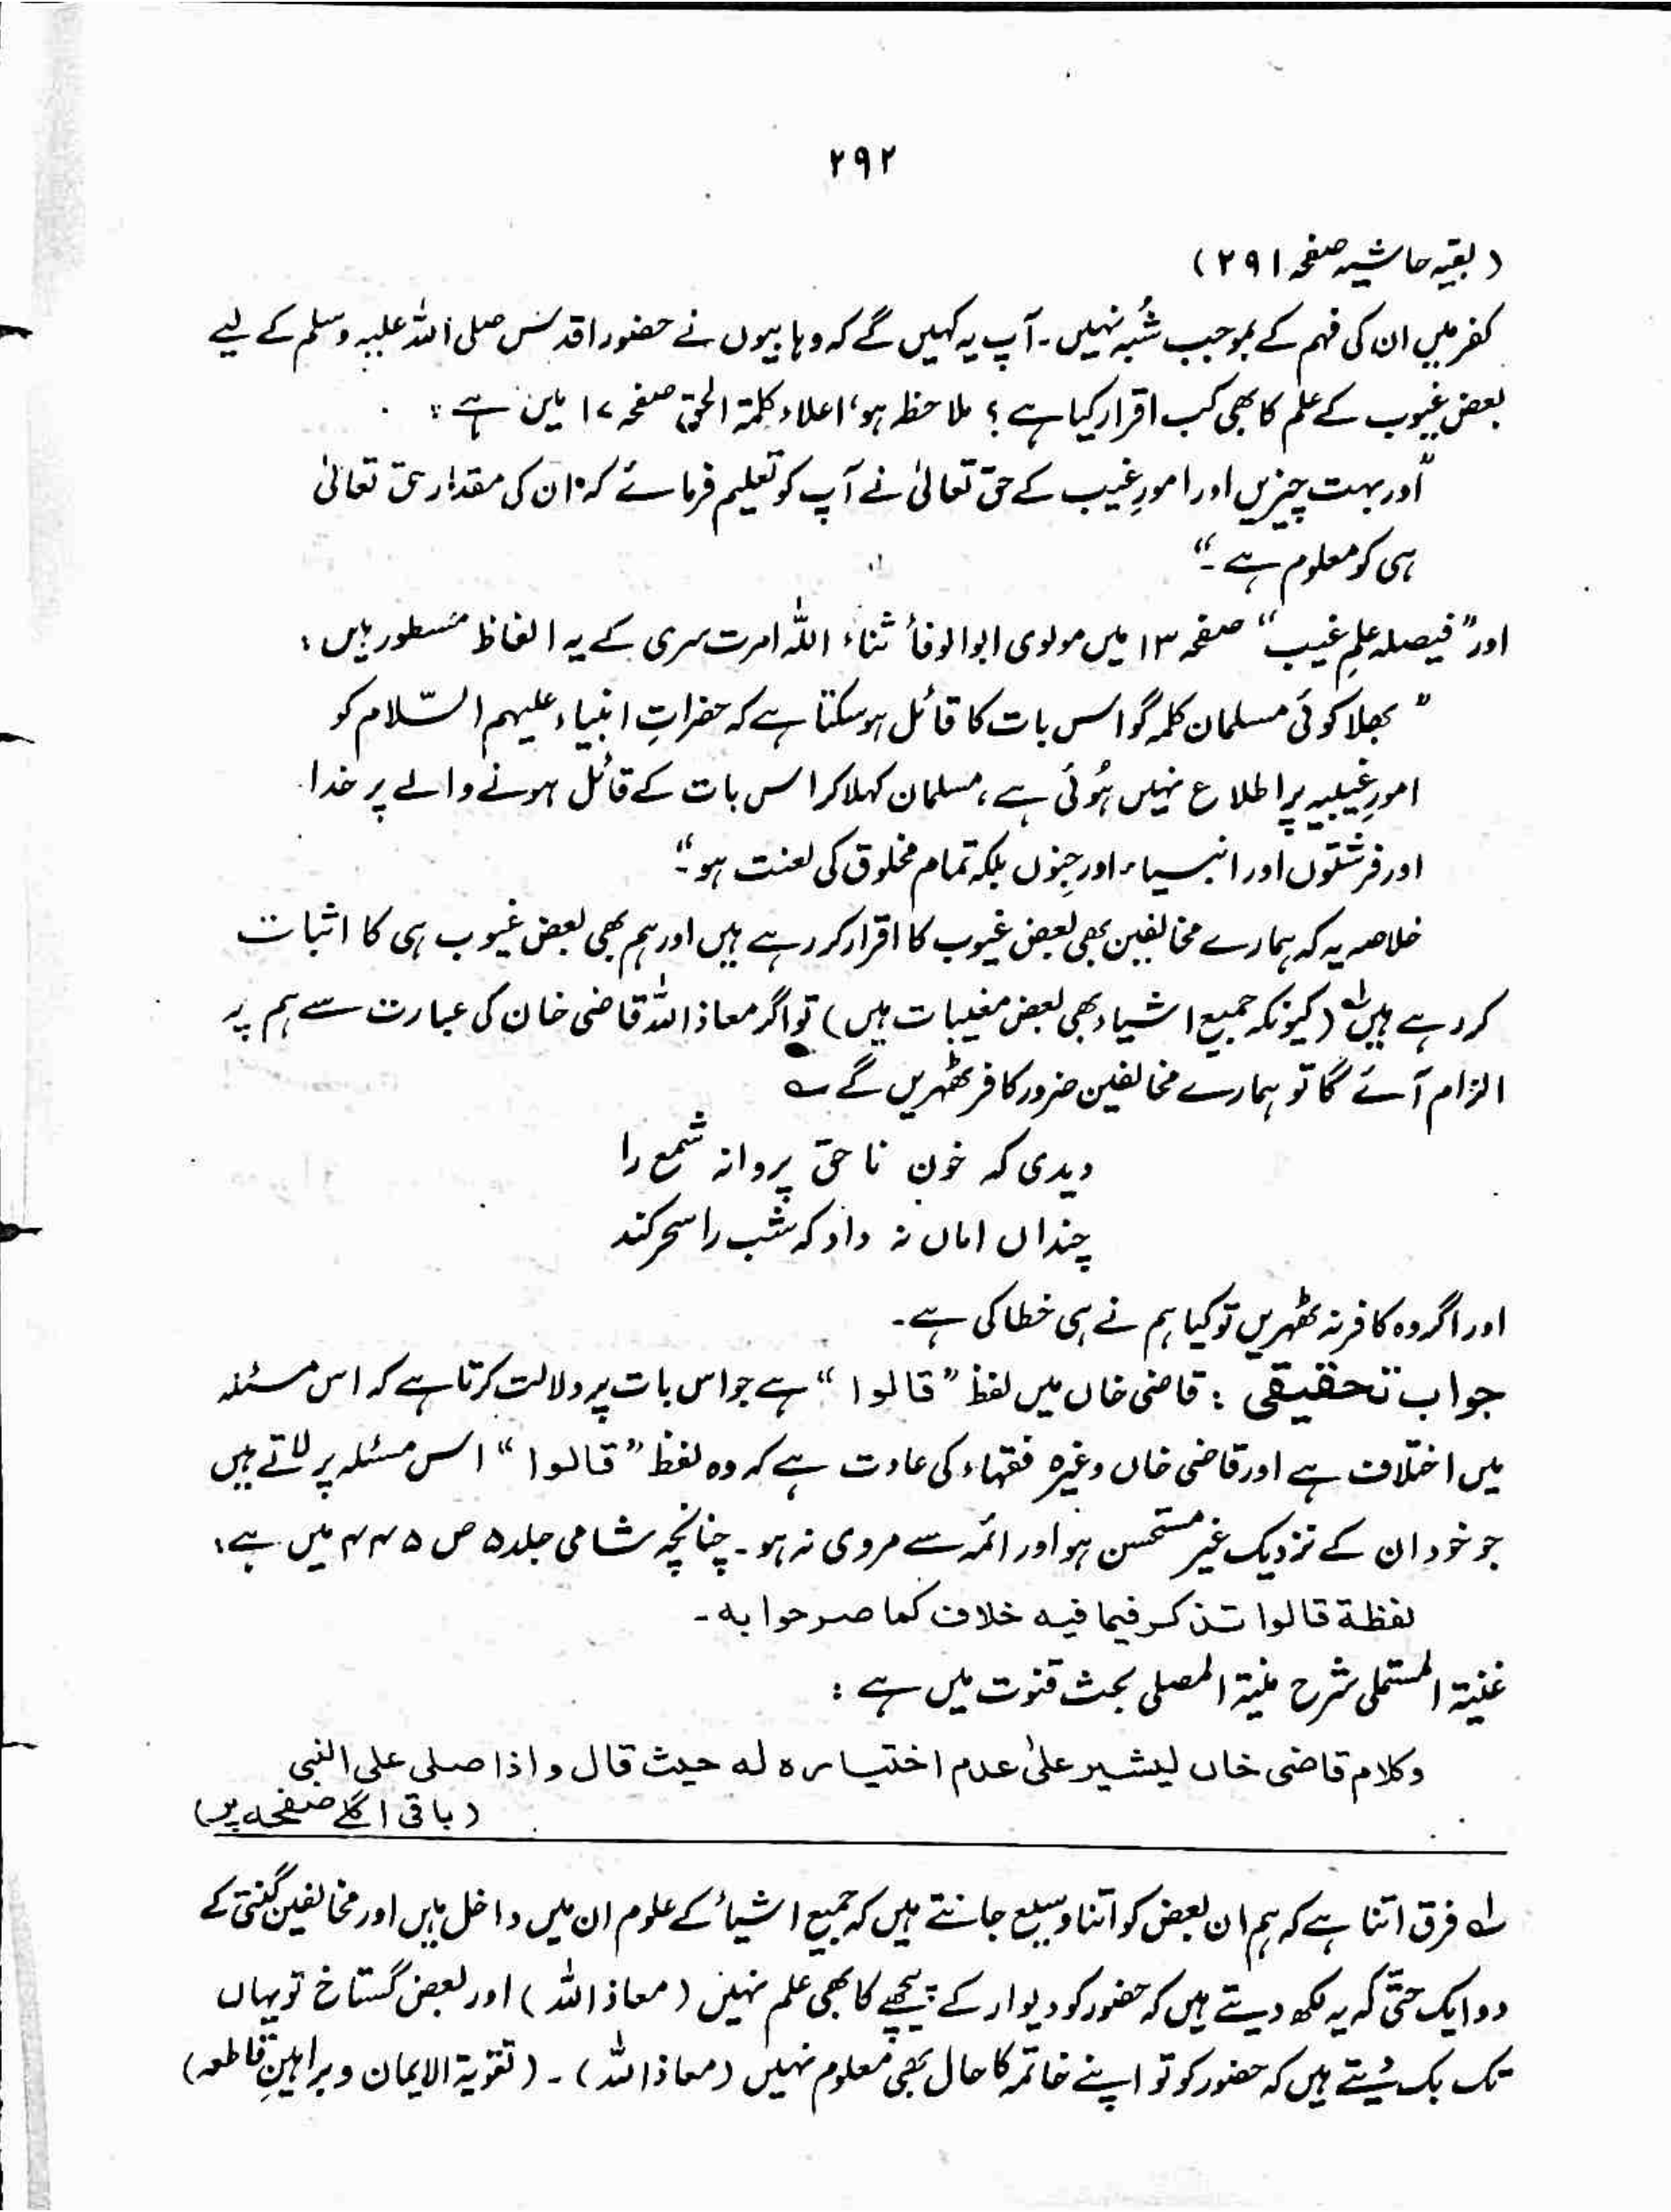 ۲۹۲
(بقیہ حاشیہ صفحہ ۲۹۱)
کفر میں ان کی فہم کے بموجب شُبہ نہیں۔ آپ یہ کہیں گے کہ وہابیوں نے حضور اقدس صلی اللہ علیہ وسلم کے لیے
بعض غیوب کے علم کا بھی کب اقرار کیا ہے؟ ملاحظہ ہو، اعلاء کلمۃ الحق صفحہ ۱۷ میں ہے:
"اور بہت چیزیں اور امورِ غیب کے حق تعالیٰ نے آپ کو تعلیم فرمائے کہ ان کی مقدار حق تعالیٰ
ہی کو معلوم ہے۔"
اور "فیصلہ علمِ غیب" صفحہ ۱۳ میں مولوی ابوالوفأ ثناء اللہ امرت سری کے یہ الفاظ مسطور ہیں:
"بھلا کوئی مسلمان کلمہ گو اس بات کا قائل ہو سکتا ہے کہ حضراتِ انبیاء علیہم السّلام کو
امورِ غیبیہ پر اطلاع نہیں ہُوئی ہے، مسلمان کہلا کر اس بات کے قائل ہونے والے پر خدا
اور فرشتوں اور انبیاء اور جِنوں بلکہ تمام مخلوق کی لعنت ہو"
خلاصہ یہ کہ ہمارے مخالفین بھی بعض غیوب کا اقرار کر رہے ہیں اور ہم بھی بعض غیوب ہی کا اثبات
کر رہے ہیں؂۱ (کیونکہ جمیع اشیاء بھی بعض مغیبات ہیں) تو اگر معاذ اللہ قاضی خان کی عبارت سے ہم پر
الزام آئے گا تو ہمارے مخالفین ضرور کافر ٹھہریں گے ؎
دیدی کہ خونِ ناحق پروانہ شمع را
چنداں اماں نہ داد کہ شب را سحر کند
اور اگر وہ کافر نہ ٹھہریں تو کیا ہم نے ہی خطا کی ہے۔
جواب تحقیقی: قاضی خاں میں لفظ "قالوا" ہے جو اس بات پر دلالت کرتا ہے کہ اس مسئلہ
میں اختلاف ہے اور قاضی خاں وغیرہ فقہاء کی عادت ہے کہ وہ لفظ "قالوا" اس مسئلہ پر لاتے ہیں
جو خود ان کے نزدیک غیر مستحسن ہو اور ائمہ سے مروی نہ ہو۔ چنانچہ شامی جلد ۵ ص ۴۴۵ میں ہے:
لفظة قالوا تذکر فیما فیه خلاف کما صرحوا به۔
غنیۃ المستملی شرح منیۃ المصلی بحث قنوت میں ہے:
وکلام قاضی خاں یشیر علیٰ عدم اختیاره له حیث قال واذا صلی علی النبی
(باقی اگلے صفحہ پر)
؂۱ فرق اتنا ہے کہ ہم ان بعض کو اتنا وسیع جانتے ہیں کہ جمیع اشیأ کے علوم ان میں داخل ہیں اور مخالفین گنتی کے
دو ایک حتّٰی کہ یہ لکھ دیتے ہیں کہ حضور کو دیوار کے پیچھے کا بھی علم نہیں (معاذ اللہ) اور بعض گستاخ تو یہاں
تک بک دیتے ہیں کہ حضور کو تو اپنے خاتمہ کا حال بھی معلوم نہیں (معاذ اللہ)۔ (تقویۃ الایمان و براہینِ قاطعہ)